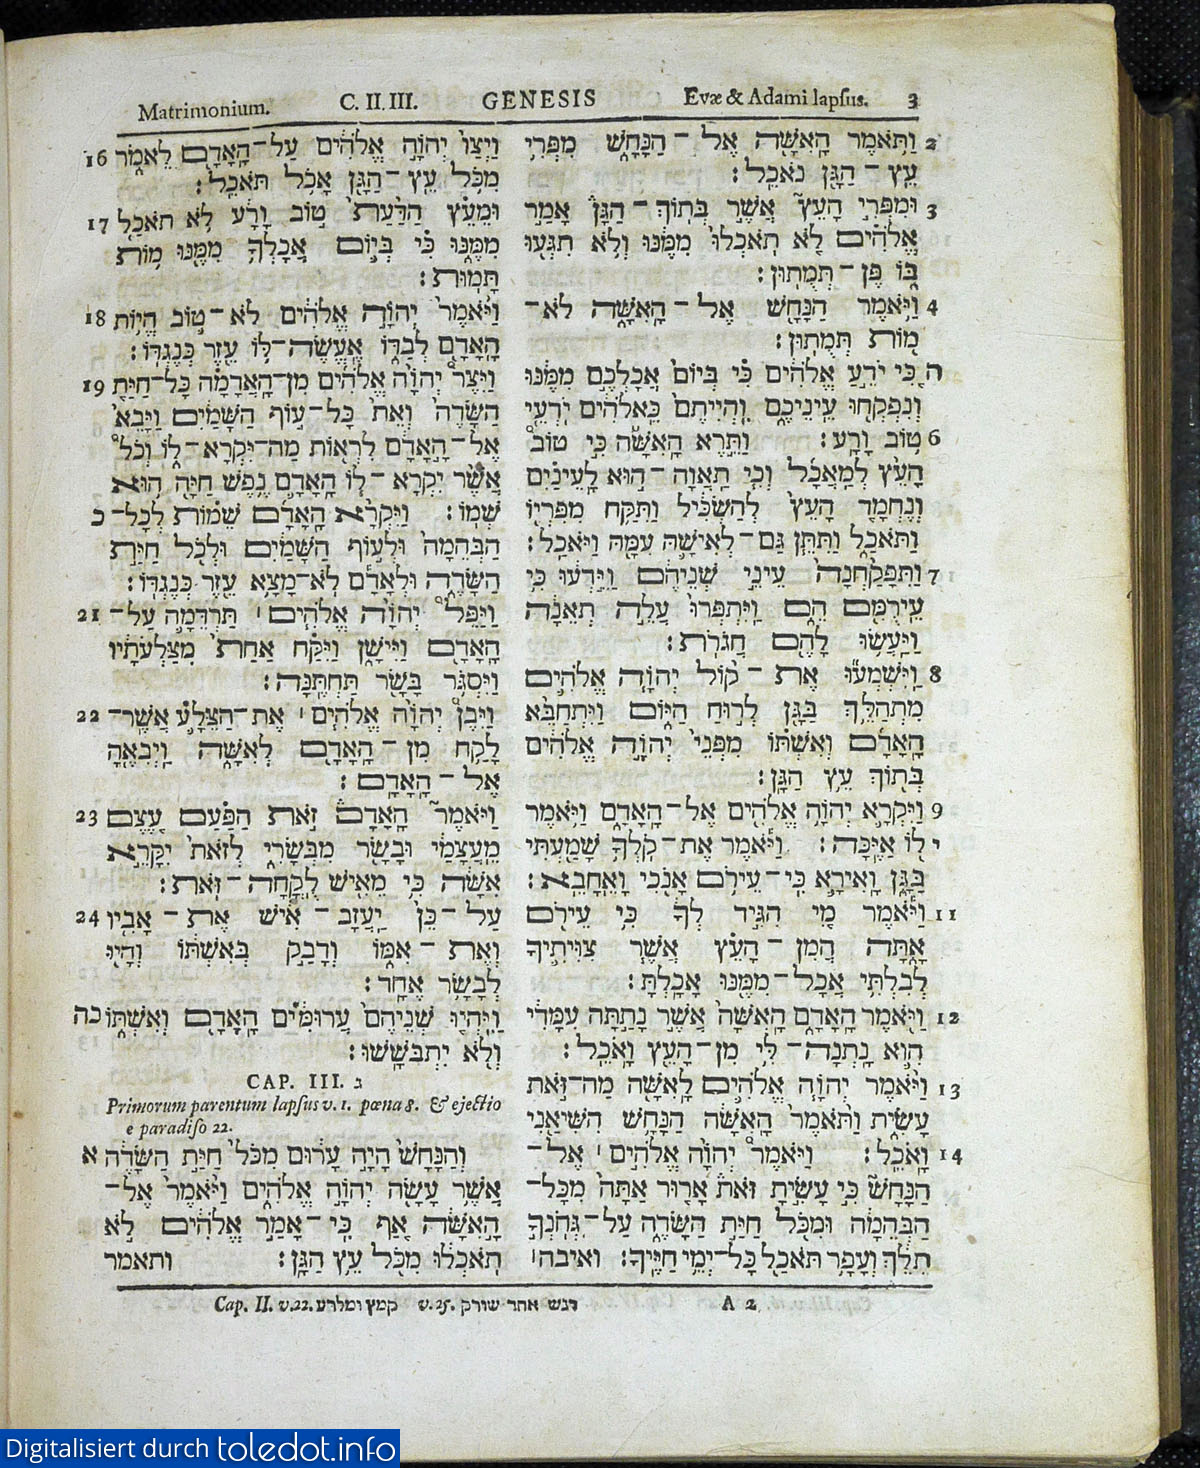 Matrimonium. C. II. III. GENESIS Evæ & Adami lapsus. 3
16 וַיְצַו יְהוָה אֱלֹהִים עַל־הָאָדָם לֵאמֹר
מִכֹּל עֵץ־הַגָּן אָכֹל תֹּאכֵל׃
17 וּמֵעֵץ הַדַּעַת טוֹב וָרָע לֹא תֹאכַל
מִמֶּנּוּ כִּי בְּיוֹם אֲכָלְךָ מִמֶּנּוּ מוֹת
תָּמוּת׃
18 וַיֹּאמֶר יְהוָה אֱלֹהִים לֹא־טוֹב הֱיוֹת
הָאָדָם לְבַדּוֹ אֶעֱשֶׂה־לּוֹ עֵזֶר כְּנֶגְדּוֹ׃
19 וַיִּצֶר יְהוָה אֱלֹהִים מִן־הָאֲדָמָה כָּל־חַיַּת
הַשָּׂדֶה וְאֵת כָּל־עוֹף הַשָּׁמַיִם וַיָּבֵא
אֶל־הָאָדָם לִרְאוֹת מַה־יִּקְרָא־לוֹ וְכֹל
אֲשֶׁר יִקְרָא־לוֹ הָאָדָם נֶפֶשׁ חַיָּה הוּא
כ שְׁמוֹ׃ וַיִּקְרָא הָאָדָם שֵׁמוֹת לְכָל־
הַבְּהֵמָה וּלְעוֹף הַשָּׁמַיִם וּלְכֹל חַיַּת
הַשָּׂדֶה וּלְאָדָם לֹא־מָצָא עֵזֶר כְּנֶגְדּוֹ׃
21 וַיַּפֵּל יְהוָה אֱלֹהִים׀ תַּרְדֵּמָה עַל־
הָאָדָם וַיִּישָׁן וַיִּקַּח אַחַת מִצַּלְעֹתָיו
וַיִּסְגֹּר בָּשָׂר תַּחְתֶּנָּה׃
22 וַיִּבֶן יְהוָה אֱלֹהִים׀ אֶת־הַצֵּלָע אֲשֶׁר־
לָקַח מִן־הָאָדָם לְאִשָּׁה וַיְבִאֶהָ
אֶל־הָאָדָם׃
23 וַיֹּאמֶר הָאָדָם זֹאת הַפַּעַם עֶצֶם
מֵעֲצָמַי וּבָשָׂר מִבְּשָׂרִי לְזֹאת יִקָּרֵא
אִשָּׁה כִּי מֵאִישׁ לֻקֳחָה־זֹּאת׃
24 עַל־כֵּן יַעֲזָב־אִישׁ אֶת־אָבִיו
וְאֶת־אִמּוֹ וְדָבַק בְּאִשְׁתּוֹ וְהָיוּ
לְבָשָׂר אֶחָד׃
כה וַיִּהְיוּ שְׁנֵיהֶם עֲרוּמִּים הָאָדָם וְאִשְׁתּוֹ
וְלֹא יִתְבֹּשָׁשׁוּ׃
CAP. III. ג
Primorum parentum lapsus v. 1. pœna 8. & ejectio
e paradiso 22.
א וְהַנָּחָשׁ הָיָה עָרוּם מִכֹּל חַיַּת הַשָּׂדֶה
אֲשֶׁר עָשָׂה יְהוָה אֱלֹהִים וַיֹּאמֶר אֶל־
הָאִשָּׁה אַף כִּי־אָמַר אֱלֹהִים לֹא
תֹאכְלוּ מִכֹּל עֵץ הַגָּן׃ ותאמר
2 וַתֹּאמֶר הָאִשָּׁה אֶל־הַנָּחָשׁ מִפְּרִי
עֵץ־הַגָּן נֹאכֵל׃
3 וּמִפְּרִי הָעֵץ אֲשֶׁר בְּתוֹךְ־הַגָּן אָמַר
אֱלֹהִים לֹא תֹאכְלוּ מִמֶּנּוּ וְלֹא תִגְּעוּ
בּוֹ פֶּן־תְּמֻתוּן׃
4 וַיֹּאמֶר הַנָּחָשׁ אֶל־הָאִשָּׁה לֹא־
מוֹת תְּמֻתוּן׃
ה כִּי יֹדֵעַ אֱלֹהִים כִּי בְּיוֹם אֲכָלְכֶם מִמֶּנּוּ
וְנִפְקְחוּ עֵינֵיכֶם וִהְיִיתֶם כֵּאלֹהִים יֹדְעֵי
6 טוֹב וָרָע׃ וַתֵּרֶא הָאִשָּׁה כִּי טוֹב
הָעֵץ לְמַאֲכָל וְכִי תַאֲוָה־הוּא לָעֵינַיִם
וְנֶחְמָד הָעֵץ לְהַשְׂכִּיל וַתִּקַּח מִפִּרְיוֹ
וַתֹּאכַל וַתִּתֵּן גַּם־לְאִישָׁהּ עִמָּהּ וַיֹּאכַל׃
7 וַתִּפָּקַחְנָה עֵינֵי שְׁנֵיהֶם וַיֵּדְעוּ כִּי
עֵירֻמִּם הֵם וַיִּתְפְּרוּ עֲלֵה תְאֵנָה
וַיַּעֲשׂוּ לָהֶם חֲגֹרֹת׃
8 וַיִּשְׁמְעוּ אֶת־קוֹל יְהוָה אֱלֹהִים
מִתְהַלֵּךְ בַּגָּן לְרוּחַ הַיּוֹם וַיִּתְחַבֵּא
הָאָדָם וְאִשְׁתּוֹ מִפְּנֵי יְהוָה אֱלֹהִים
בְּתוֹךְ עֵץ הַגָּן׃
9 וַיִּקְרָא יְהוָה אֱלֹהִים אֶל־הָאָדָם וַיֹּאמֶר
י לוֹ אַיֶּכָּה׃ וַיֹּאמֶר אֶת־קֹלְךָ שָׁמַעְתִּי
בַּגָּן וָאִירָא כִּי־עֵירֹם אָנֹכִי וָאֵחָבֵא׃
11 וַיֹּאמֶר מִי הִגִּיד לְךָ כִּי עֵירֹם
אָתָּה הֲמִן־הָעֵץ אֲשֶׁר צִוִּיתִיךָ
לְבִלְתִּי אֲכָל־מִמֶּנּוּ אָכָלְתָּ׃
12 וַיֹּאמֶר הָאָדָם הָאִשָּׁה אֲשֶׁר נָתַתָּה עִמָּדִי
הִוא נָתְנָה־לִּי מִן־הָעֵץ וָאֹכֵל׃
13 וַיֹּאמֶר יְהוָה אֱלֹהִים לָאִשָּׁה מַה־זֹּאת
עָשִׂית וַתֹּאמֶר הָאִשָּׁה הַנָּחָשׁ הִשִּׁיאַנִי
14 וָאֹכֵל׃ וַיֹּאמֶר יְהוָה אֱלֹהִים׀ אֶל־
הַנָּחָשׁ כִּי עָשִׂיתָ זֹּאת אָרוּר אַתָּה מִכָּל־
הַבְּהֵמָה וּמִכֹּל חַיַּת הַשָּׂדֶה עַל־גְּחֹנְךָ
תֵלֵךְ וְעָפָר תֹּאכַל כָּל־יְמֵי חַיֶּיךָ׃ ואיבה׀
Cap. II. v. 22. קמץ ומלרע v. 25. דגש אחר שורק A 2
Digitalisiert durch toledot.info